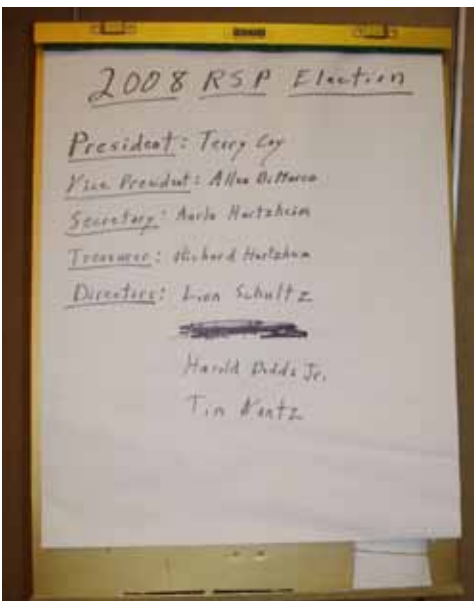 2008 RSP Election
President: Terry Coy
Vice President: Allen DiMarco
Secretary: Hartzheim
Treasurer: Richard Hartzheim
Directors: Schultz
Harold Dodds Jr.
Tim